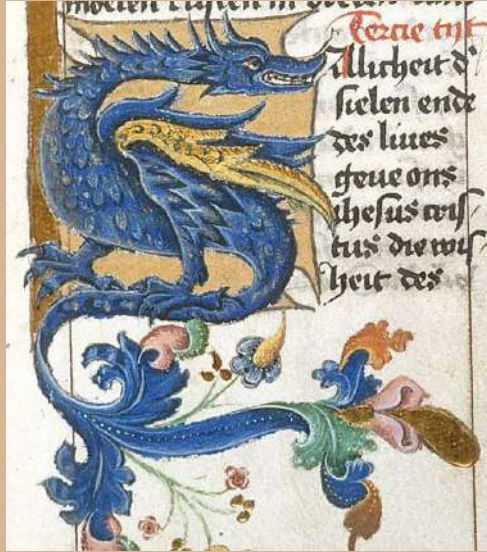 moeten
Tercie tijt
allicheit d'
sielen ende
des liues
geue ons
ihesus cris/
tus die wijs/
heit des